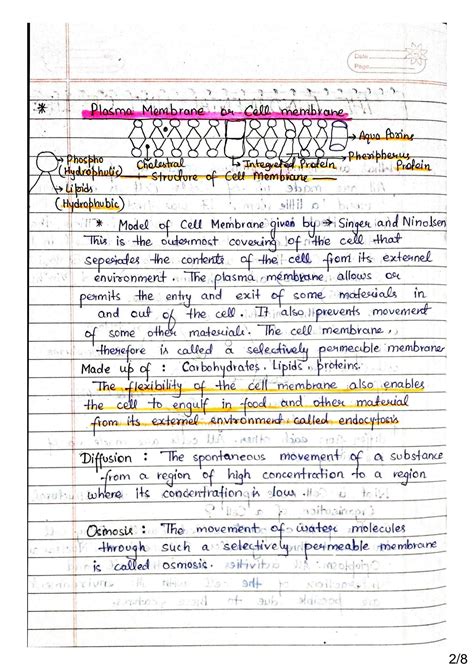 Date
Page
* Plasma Membrane or Cell membrane
→ Aqua Porins
→ Phospho Cholestral → Integrated Protein → Pheripherus Protein
(Hydrophulic) Structure of Cell Membrane
→ Lipids
(Hydrophubic)
* Model of Cell Membrane given by → Singer and Ninolsen
This is the outermost covering of the cell that
seperates the contents of the cell from its external
environment. The plasma membrane allows or
permits the entry and exit of some materials in
and out of the cell. It also prevents movement
of some other materials. The cell membrane,
therefore is called a selectively permeable membrane
Made up of : Carbohydrates, Lipids, proteins.
The flexibility of the cell membrane also enables
the cell to engulf in food and other material
from its external environment called endocytosis
Diffusion : The spontaneous movement of a substance
from a region of high concentration to a region
where its concentration is low.
Osmosis : The movement of water molecules
through such a selectively permeable membrane
is called osmosis.
2/8